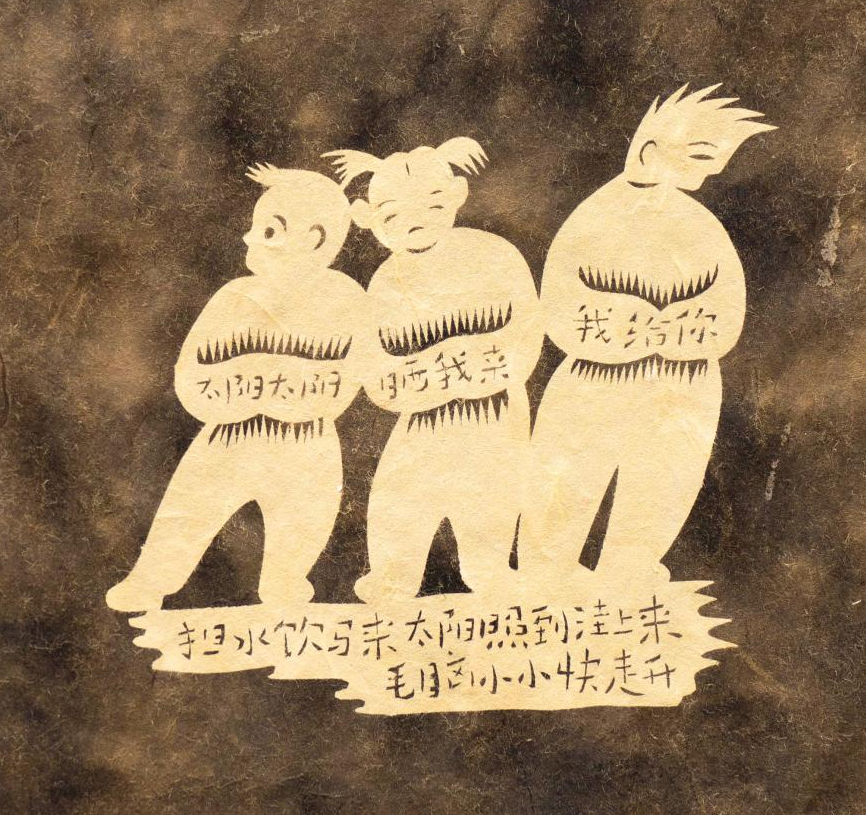 太阳太阳
晒我来
我给你
担水饮马来
太阳照到洼上来
毛脑小小快走开